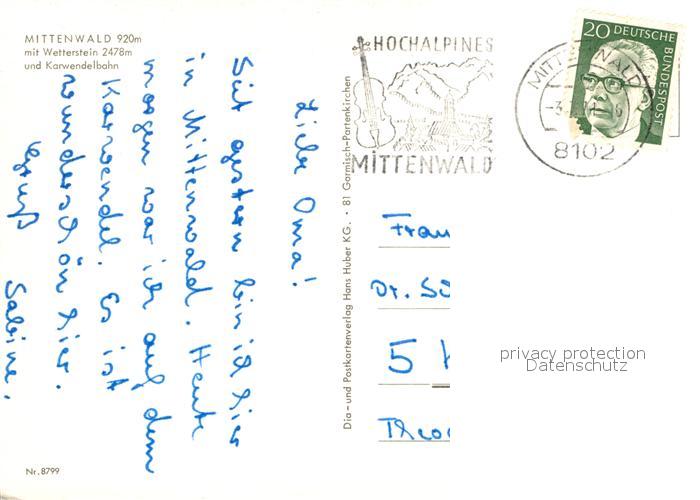 MITTENWALD 920m
mit Wetterstein 2478m
und Karwendelbahn
Liebe Oma!
Seit gestern bin ich hier
in Mittenwald. Heute
morgen war ich auf dem
Karwendel. Es ist
wunderschön hier.
Gruß
Sabine.
Nr. 8799
Dia- und Postkartenverlag Hans Huber KG. · 81 Garmisch-Partenkirchen
HOCHALPINES
MITTENWALD
MITTENWALD
8102
20 DEUTSCHE
BUNDESPOST
Frau
Dr.
5
privacy protection
Datenschutz